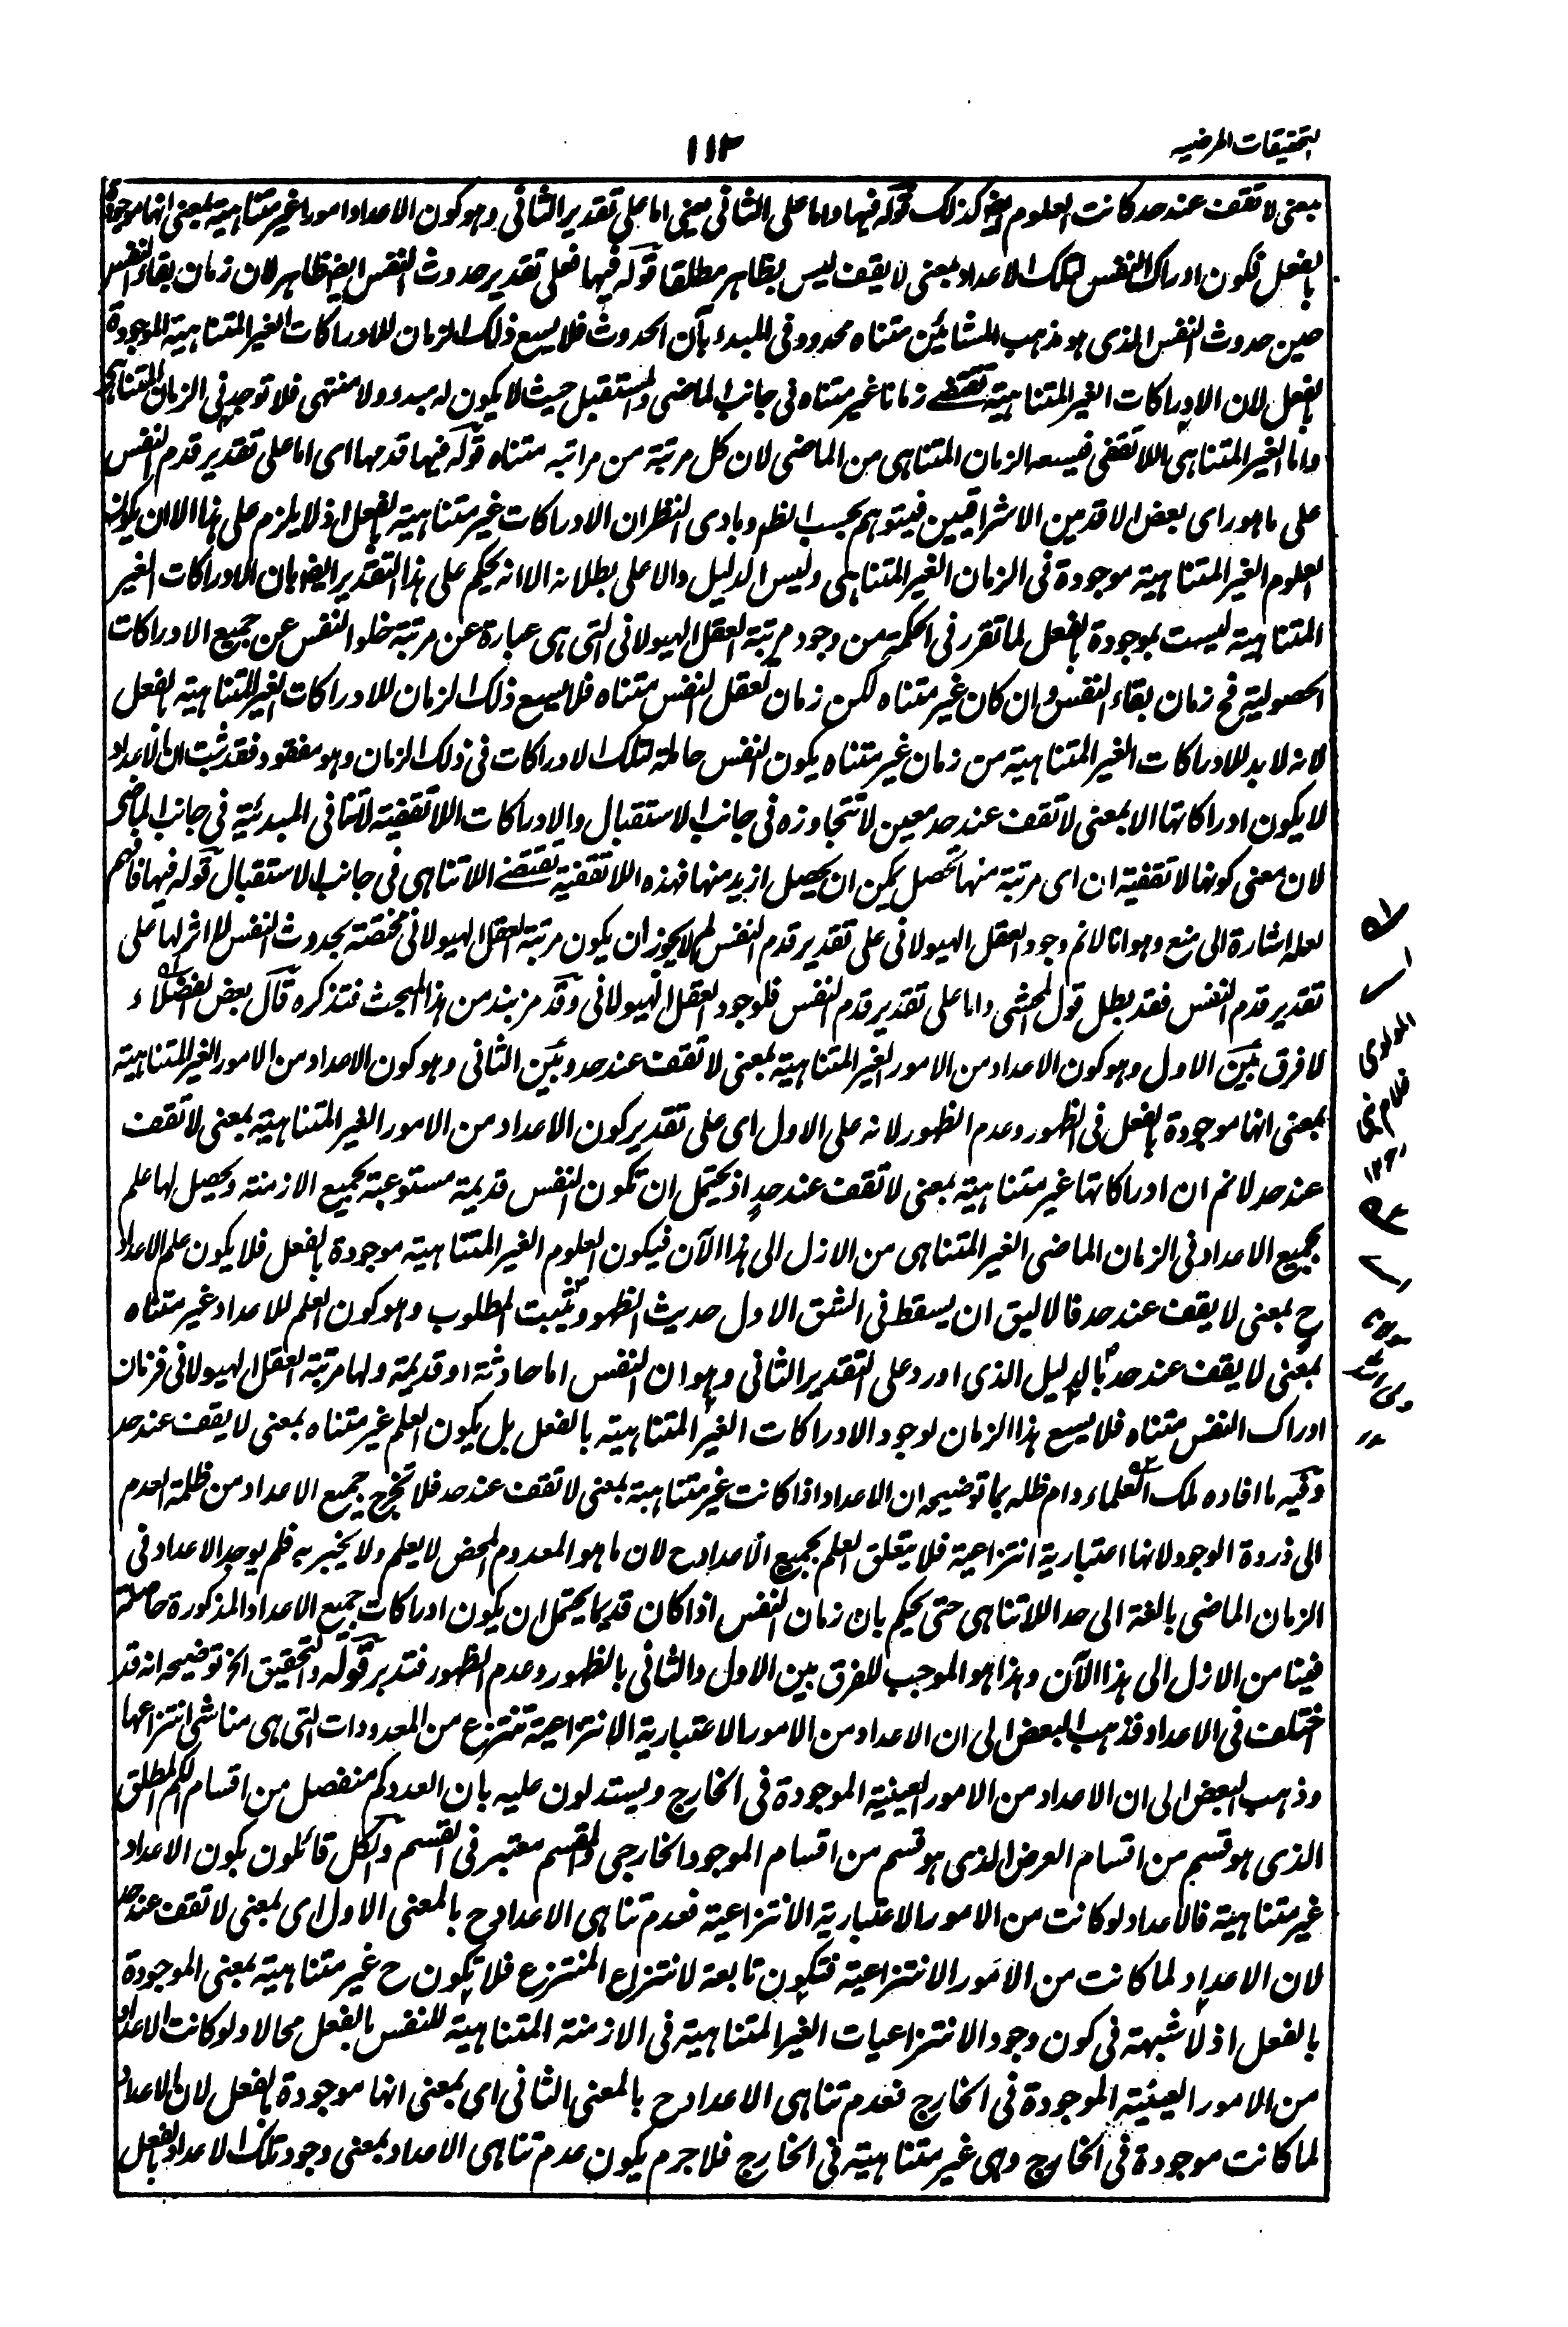 التحقيقات المرضيه
١١٢
بمعنى لا تقف عند حد كانت العلوم ايض كذلك قوله فيها واما على الثانى يعنى اما على تقدير الثانى وهو كون الاعداد امورا غير متناهية بمعنى انها موجودة
بالفعل فكون ادراك النفس لتلك الاعداد بمعنى لا يقف ليس بظاهر مطلقا قوله فيها فعلى تقدير حدوث النفس ايض ظاهر لان زمان بقاء النفس
حين حدوث النفس الذى هو مذهب المشائين متناه محدود فى المبدء بآن الحدوث فلا يسع ذلك الزمان للادراكات الغير المتناهية الموجودة
بالفعل لان الادراكات الغير المتناهية تقتضى زمانا غير متناه فى جانب الماضى والمستقبل حيث لا يكون له مبدء ولا منتهى فلا توجد فى الزمان المتناهى
واما الغير المتناهى اللا تقفى فيسعه الزمان المتناهى من الماضى لان كل مرتبة من مراتبه متناه قوله فيها قدمها اى اما على تقدير قدم النفس
على ما هو راى بعض الاقدمين الاشراقيين فيتوهم بحسب الظ وبادى النظر ان الادراكات غير متناهية بالفعل اذ لا يلزم على هذا الا ان يكون
العلوم الغير المتناهية موجودة فى الزمان الغير المتناهى وليس الدليل دالا على بطلانه الا انه يحكم على هذا التقدير ايض بان الادراكات الغير
المتناهية ليست بموجودة بالفعل لما تقرر فى الحكمة من وجود مرتبة العقل الهيولانى التى هى عبارة عن مرتبة خلو النفس عن جميع الادراكات
الحصولية فح زمان بقاء النفس وان كان غير متناه لكن زمان تعقل النفس متناه فلا يسع ذلك الزمان للادراكات الغير المتناهية بالفعل
لانه لا بد للادراكات الغير المتناهية من زمان غير متناه يكون النفس حاملة لتلك الادراكات فى ذلك الزمان وهو مفقود فقد ثبت ان الاعداد
لا يكون ادراكاتها الا بمعنى لا تقف عند حد معين لا تتجاوزه فى جانب الاستقبال والادراكات اللا تقفية لا تنافى المبدئية فى جانب الماضى
لان معنى كونها لا تقفية ان اى مرتبة منها تحصل يمكن ان يحصل ازيد منها فهذه اللا تقفية تقتضى اللا تناهى فى جانب الاستقبال قوله فيها فافهم
لعله اشارة الى منع وهو انا لا نم وجود العقل الهيولانى على تقدير قدم النفس لم لا يجوز ان يكون مرتبة العقل الهيولانى مختصة بحدوث النفس لا اثر لها على
تقدير قدم النفس فقد بطل قول المحشى واما على تقدير قدم النفس فلوجود العقل الهيولانى وقد مر نبذ من هذا المبحث فتذكره قال بعض الفضلاء
لا فرق بين الاول وهو كون الاعداد من الامور الغير المتناهية بمعنى لا تقف عند حد وبين الثانى وهو كون الاعداد من الامور الغير المتناهية
بمعنى انها موجودة بالفعل فى الظهور وعدم الظهور لانه على الاول اى على تقدير كون الاعداد من الامور الغير المتناهية بمعنى لا تقف
عند حد لا نم ان ادراكاتها غير متناهية بمعنى لا تقف عند حد اذ يحتمل ان تكون النفس قديمة مستوعبة بجميع الازمنة ويحصل لها علم
بجميع الاعداد فى الزمان الماضى الغير المتناهى من الازل الى هذا الآن فيكون العلوم الغير المتناهية موجودة بالفعل فلا يكون علم الاعداد
ح بمعنى لا يقف عند حد فالاليق ان يسقط فى الشق الاول حديث الظهور ويثبت المطلوب وهو كون العلم للاعداد غير متناه
بمعنى لا يقف عند حد بالدليل الذى اورد على التقدير الثانى وهو ان النفس اما حادثة او قديمة ولها مرتبة العقل الهيولانى فزمان
ادراك النفس متناه فلا يسع هذا الزمان لوجود الادراكات الغير المتناهية بالفعل بل يكون العلم غير متناه بمعنى لا يقف عند حد
وفيه ما افاده ملك العلماء دام ظله بما توضيحه ان الاعداد اذا كانت غير متناهية بمعنى لا تقف عند حد فلا تخرج جميع الاعداد من ظلمة العدم
الى ذروة الوجود لانها اعتبارية انتزاعية فلا يتعلق العلم بجميع الاعداد ح لان ما هو المعدوم المحض لا يعلم ولا يخبر به فلم يوجد الاعداد فى
الزمان الماضى بالغة الى حد اللا تناهى حتى يحكم بان زمان النفس اذا كان قديما يحتمل ان يكون ادراكات جميع الاعداد المذكورة حاصلة
فينا من الازل الى هذا الآن وهذا هو الموجب للفرق بين الاول والثانى بالظهور وعدم الظهور فتدبر قوله والتحقيق الخ توضيحه انه قد
اختلف فى الاعداد فذهب البعض الى ان الاعداد من الامور الاعتبارية الانتزاعية تنتزع من المعدودات التى هى مناشى انتزاعها
وذهب البعض الى ان الاعداد من الامور العينية الموجودة فى الخارج ويستدلون عليه بان العدد كم منفصل من اقسام الكم المطلق
الذى هو قسم من اقسام العرض الذى هو قسم من اقسام الموجود الخارجى والمقسم معتبر فى القسم والكل قائلون بكون الاعداد
غير متناهية فالاعداد لو كانت من الامور الاعتبارية الانتزاعية فعدم تناهى الاعداد ح بالمعنى الاول اى بمعنى لا تقف عند حد
لان الاعداد لما كانت من الامور الانتزاعية فتكون تابعة لانتزاع المنتزع فلا يكون ح غير متناهية بمعنى الموجودة
بالفعل اذ لا شبهة فى كون وجود الانتزاعيات الغير المتناهية فى الازمنة المتناهية للنفس بالفعل محالا ولو كانت الاعداد
من الامور العينية الموجودة فى الخارج فعدم تناهى الاعداد ح بالمعنى الثانى اى بمعنى انها موجودة بالفعل لان الاعداد
لما كانت موجودة فى الخارج وهى غير متناهية فى الخارج فلا جرم يكون عدم تناهى الاعداد بمعنى وجود تلك الاعداد بالفعل
المولوى
غلام